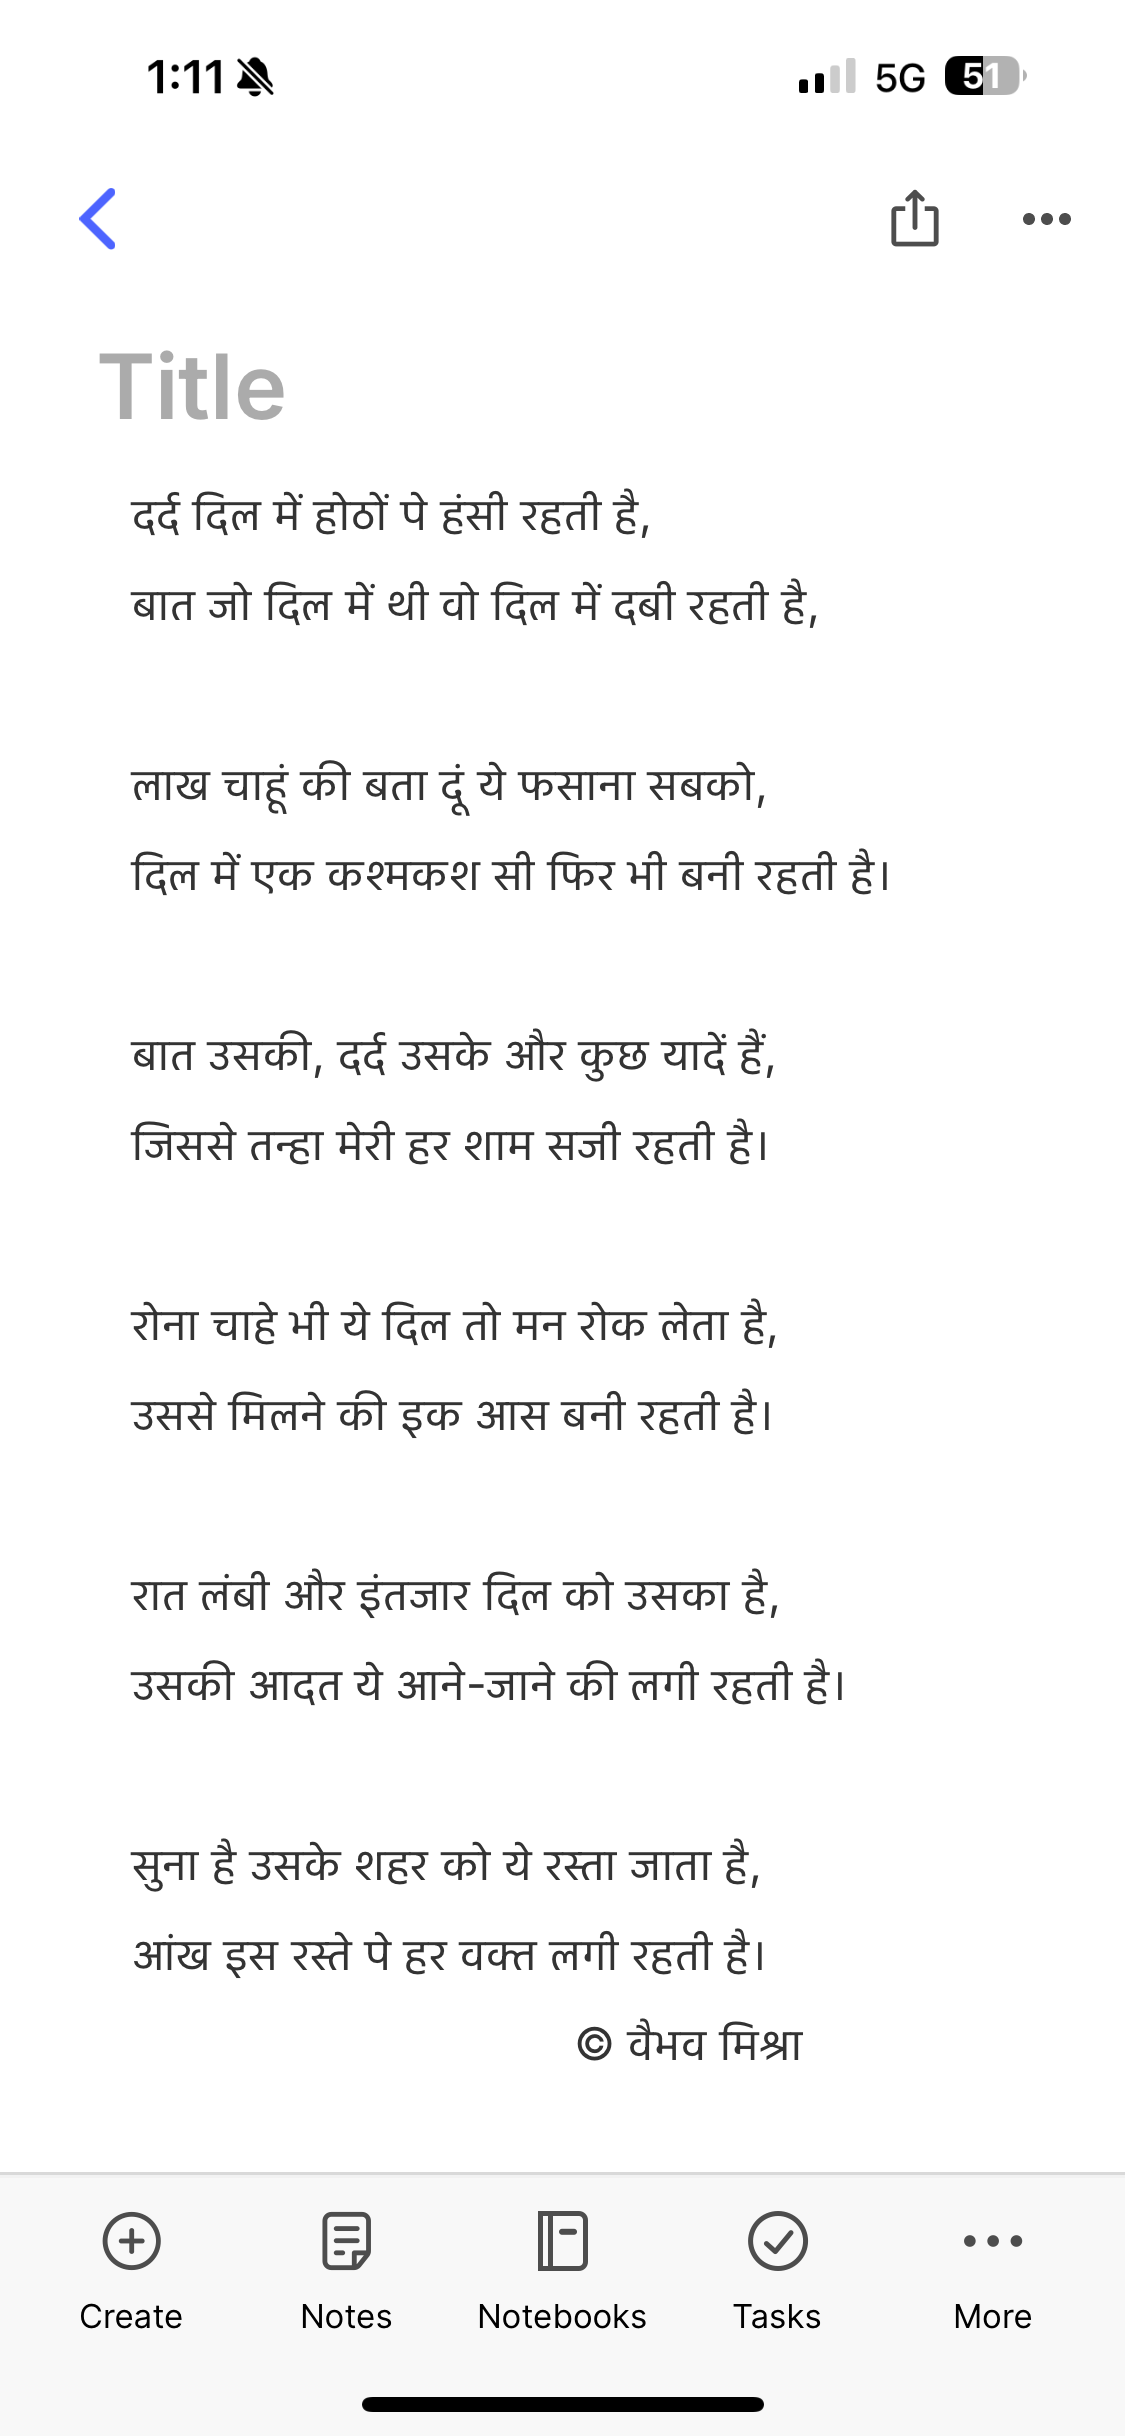 1:11
5G 51
Title
दर्द दिल में होठों पे हंसी रहती है,
बात जो दिल में थी वो दिल में दबी रहती है,
लाख चाहूं की बता दूं ये फसाना सबको,
दिल में एक कश्मकश सी फिर भी बनी रहती है।
बात उसकी, दर्द उसके और कुछ यादें हैं,
जिससे तन्हा मेरी हर शाम सजी रहती है।
रोना चाहे भी ये दिल तो मन रोक लेता है,
उससे मिलने की इक आस बनी रहती है।
रात लंबी और इंतजार दिल को उसका है,
उसकी आदत ये आने-जाने की लगी रहती है।
सुना है उसके शहर को ये रस्ता जाता है,
आंख इस रस्ते पे हर वक्त लगी रहती है।
© वैभव मिश्रा
Create Notes Notebooks Tasks More